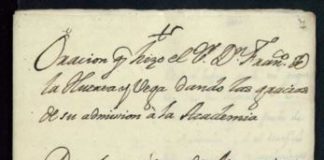 Oracion q̃ hizo el S.r D.n Fran.co de
la Huerta y Vega dando las gracias
de su admision à la Academia